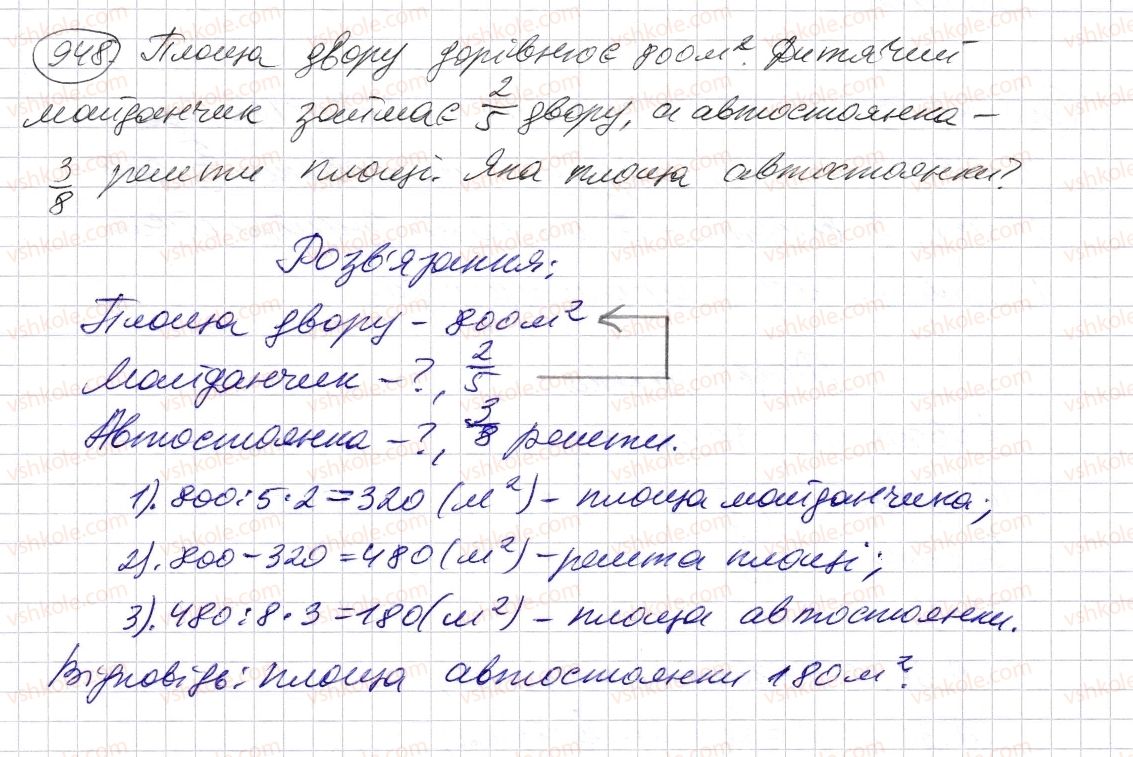 948) Площа двору дорівнює 800 м². Дитячий
майданчик займає 2/5 двору, а автостоянка –
3/8 решти площі. Яка площа автостоянки?
Розв'язання:
Площа двору – 800 м²
Майданчик – ?, 2/5
Автостоянка – ?, 3/8 решти.
1). 800 : 5 · 2 = 320 (м²) – площа майданчика;
2). 800 – 320 = 480 (м²) – решта площі;
3). 480 : 8 · 3 = 180 (м²) – площа автостоянки.
Відповідь: площа автостоянки 180 м².